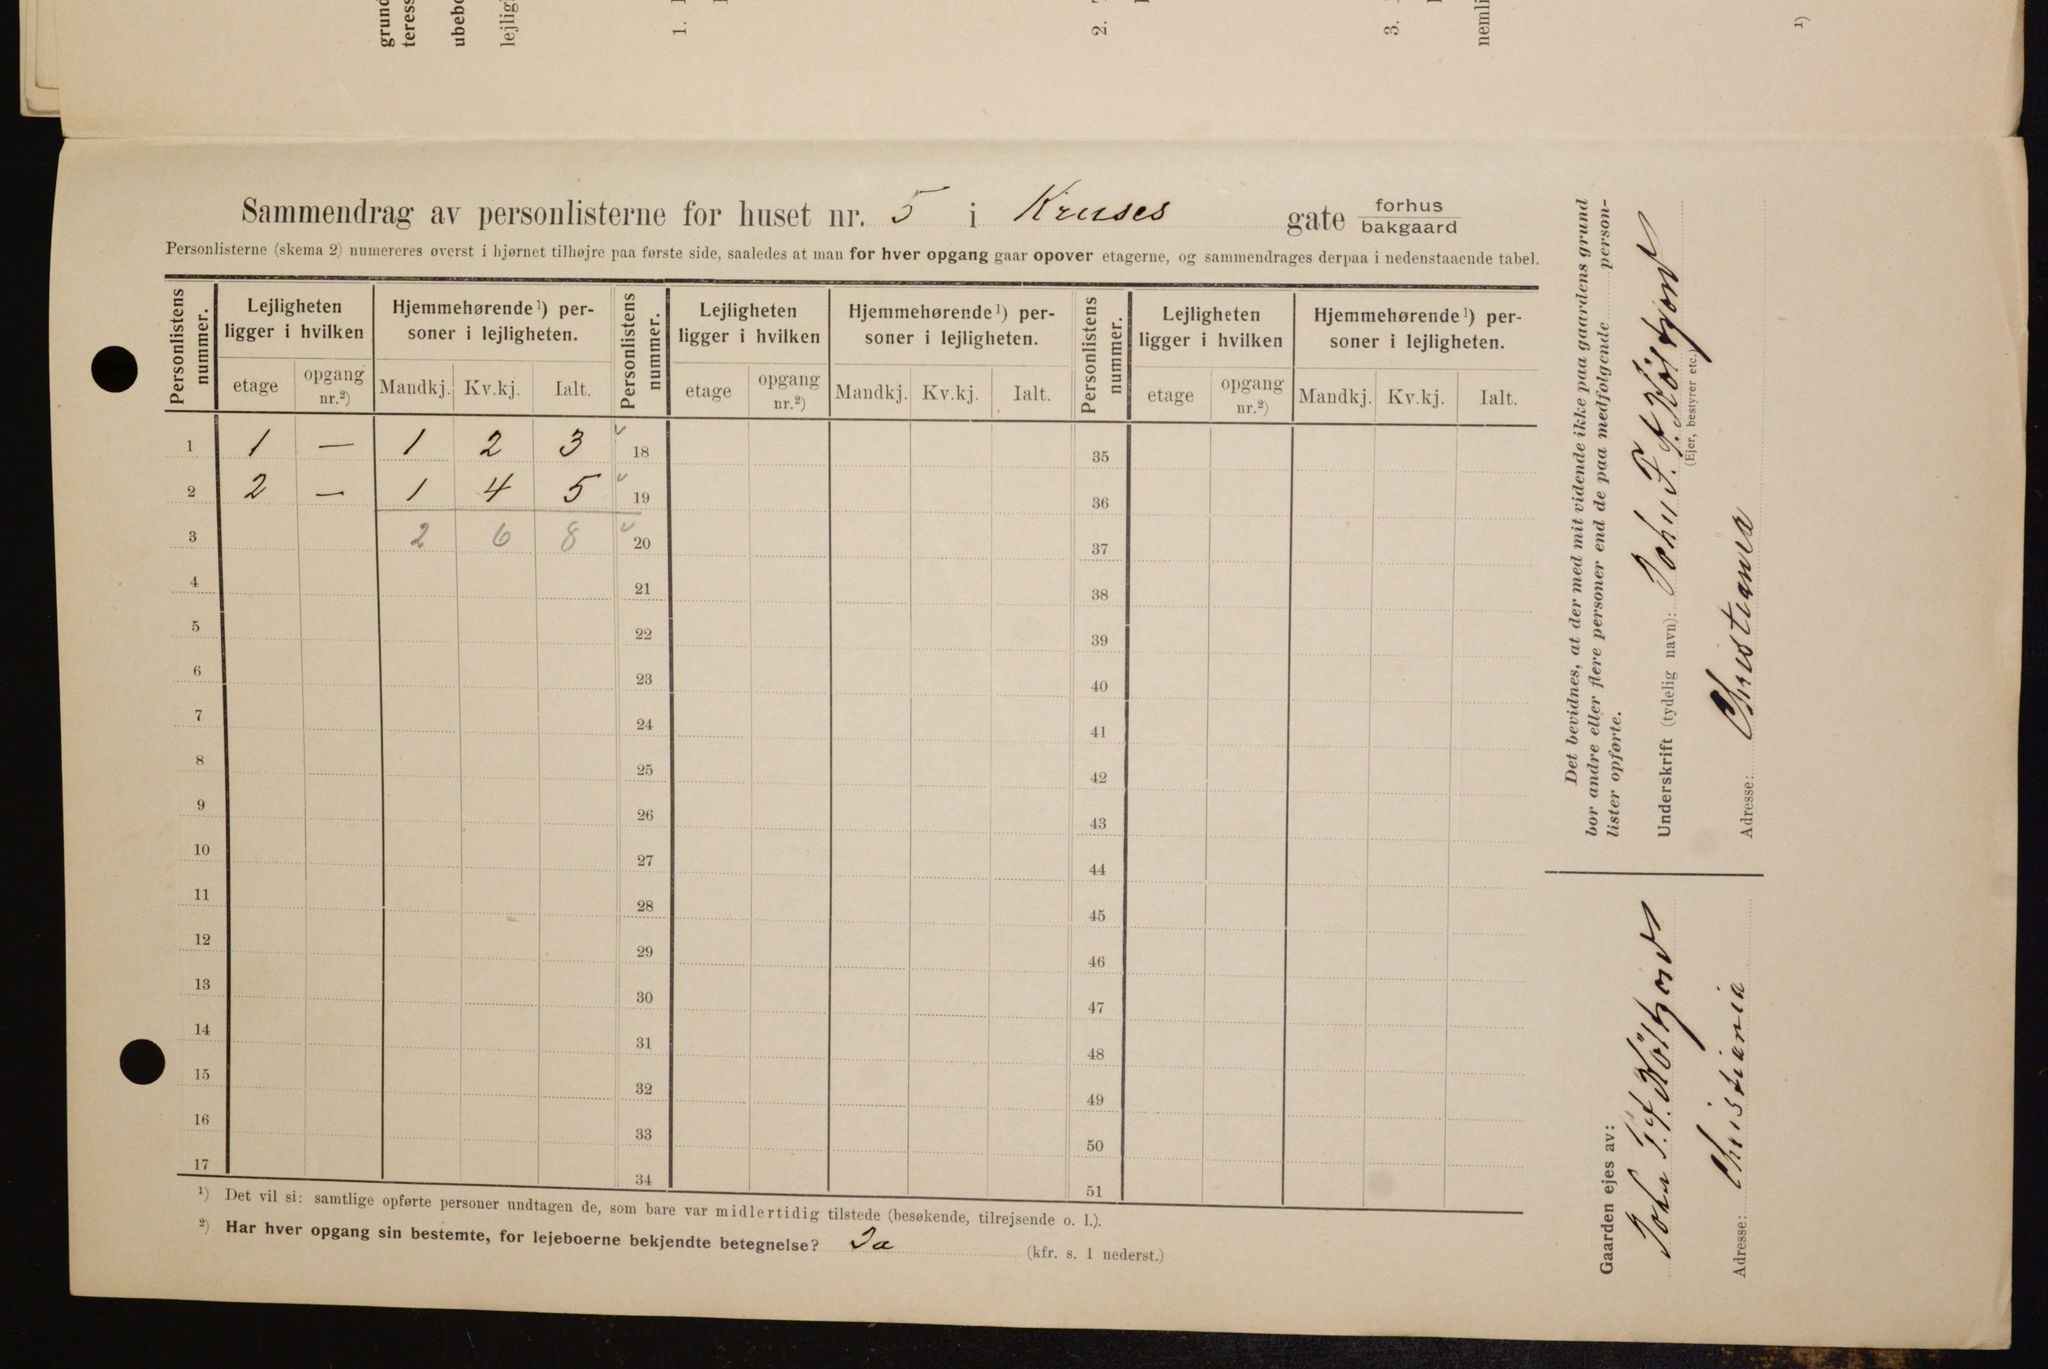 grund
teress
ubebo
lejligh
1.
2.
3.
nemli
1)
Sammendrag av personlisterne for huset nr. 5 i Kruses gate forhus
bakgaard
Personlisterne (skema 2) numereres øverst i hjørnet tilhøjre paa første side, saaledes at man for hver opgang gaar opover etagerne, og sammendrages derpaa i nedenstaaende tabel.
Personlistens nummer. Lejligheten ligger i hvilken Hjemmehørende 1) personer i lejligheten. Personlistens nummer. Lejligheten ligger i hvilken Hjemmehørende 1) personer i lejligheten. Personlistens nummer. Lejligheten ligger i hvilken Hjemmehørende 1) personer i lejligheten.
etage opgang nr.2) Mandkj. Kv.kj. Ialt. etage opgang nr.2) Mandkj. Kv.kj. Ialt. etage opgang nr.2) Mandkj. Kv.kj. Ialt.
1 1 — 1 2 3 18 35
2 2 — 1 4 5 19 36
3 2 6 8 20 37
4 21 38
5 22 39
6 23 40
7 24 41
8 25 42
9 26 43
10 27 44
11 28 45
12 29 46
13 30 47
14 31 48
15 32 49
16 33 50
17 34 51
1) Det vil si: samtlige opførte personer undtagen de, som bare var midlertidig tilstede (besøkende, tilrejsende o. l.).
2) Har hver opgang sin bestemte, for lejeboerne bekjendte betegnelse? Ja (kfr. s. 1 nederst.)
Det bevidnes, at der med mit vidende ikke paa gaardens grund
bor andre eller flere personer end de paa medfølgende person-
lister opførte.
Underskrift (tydelig navn): John F. F.
(Ejer, bestyrer etc.)
Adresse: Christiania
Gaarden ejes av:
John F. F.
Adresse: Christiania